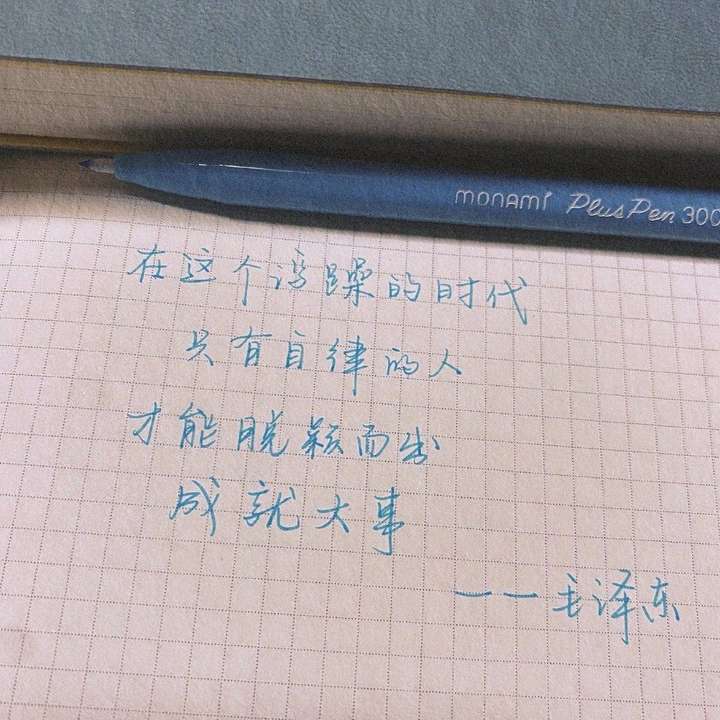 monami Plus Pen 300
在这个浮躁的时代
只有自律的人
才能脱颖而出
成就大事
——毛泽东